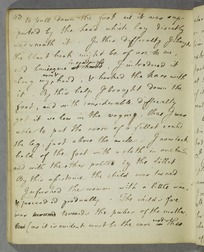 to pull down the foot as it was sup-
ported by the hand which lay directly
underneath it. In this difficulty I thought
the blunt hook might be of use to me
and I introduced it
above my hand, & hooked the knee with
it. By this help I brought down the
foot, and with considerable difficulty
got it so low in the vagina, that I was
able to put the noose of a fillet round
the leg, just above the ancle. I now took
hold of the foot with a cloth in one hand
and with the other pulled by the fillet
By this assistance, the child was turned
I informed the woman with a little was
& proceeded gradually. The child's face
was towards the pubes of the mother
as it is evident must be the case